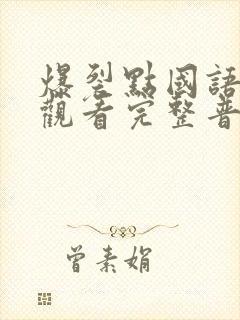 爆裂點國語
觀看完整普
曾素娟